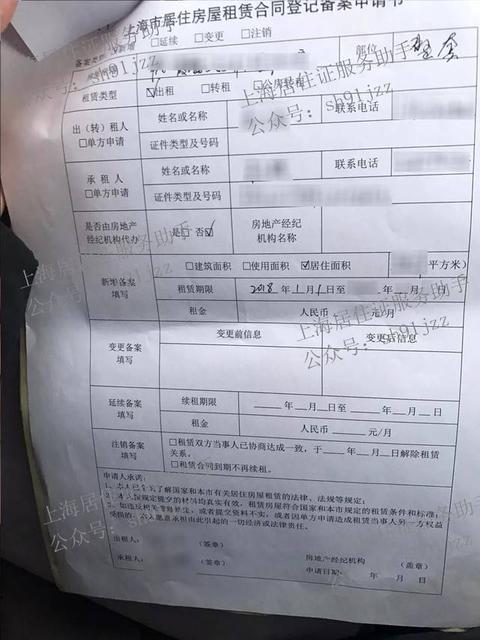 上海市居住房屋租赁合同登记备案申请书
备案类型 新增 □延续 □变更 □注销
部位 整套
租赁类型 ☑出租 □转租
出（转）租人 □单方申请 姓名或名称 联系电话
证件类型及号码
承租人 □单方申请 姓名或名称 联系电话
证件类型及号码
是否由房地产经纪机构代办 是□ 否☑ 房地产经纪机构名称
新增备案填写 □建筑面积 □使用面积 ☑居住面积 平方米）
租赁期限 2018年1月1日至 年 月 日
租金 人民币 元/月
变更备案填写 变更前信息 变更后信息
延续备案填写 续租期限 ____年__月__日至____年__月__日
租金 人民币____元/月
注销备案填写 □租赁双方当事人已协商达成一致，于____年__月__日解除租赁关系。
□租赁合同到期不再续租。
申请人承诺：
1、本人已全面了解国家和本市有关居住房屋租赁的法律、法规等规定；
2、本人按规定提交的材料均真实有效，租赁房屋符合国家和本市规定的租赁条件和标准；
3、如违反相关管理规定，或者提交资料不实，或者因单方申请造成租赁当事人另一方权益
受损的，本人愿意承担由此引起的一切经济或法律责任。
出租人： （签章）
承租人： （签章） 房地产经纪机构 （盖章）
申请日期： 年 月 日
上海居住证服务助手
公众号：sh91jzz